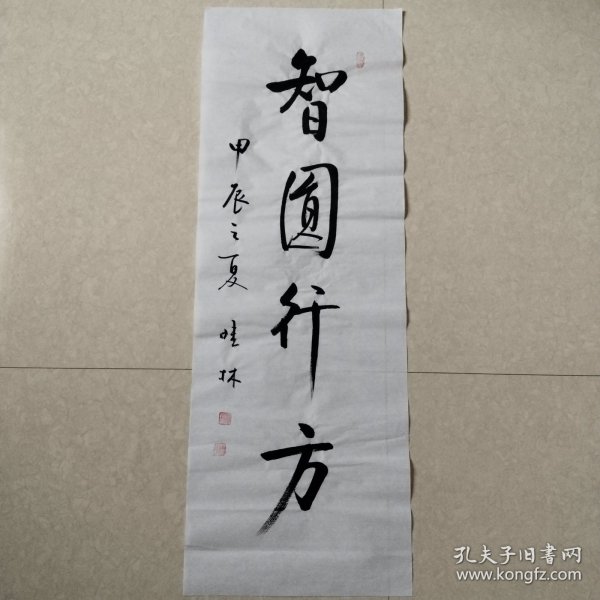 智圓行方
甲辰之夏 桂林
孔夫子旧書网
www.kongfz.com